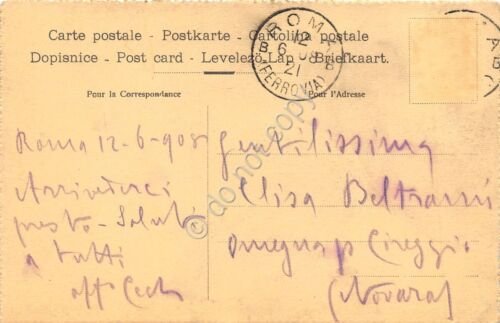 Carte postale - Postkarte - Cartolina postale
Dopisnice - Post card - Levelező-Lap - Briefkaart.
ROMA
12
6 08
21
B B
(FERROVIA)
Pour la Correspondance
Pour l'Adresse
Roma 12-6-908
Arrivederci
presto - Saluti
a tutti
aff
Gentilissima
Elisa Beltrami
Omegna p Cireggio
(Novara)
do not copy